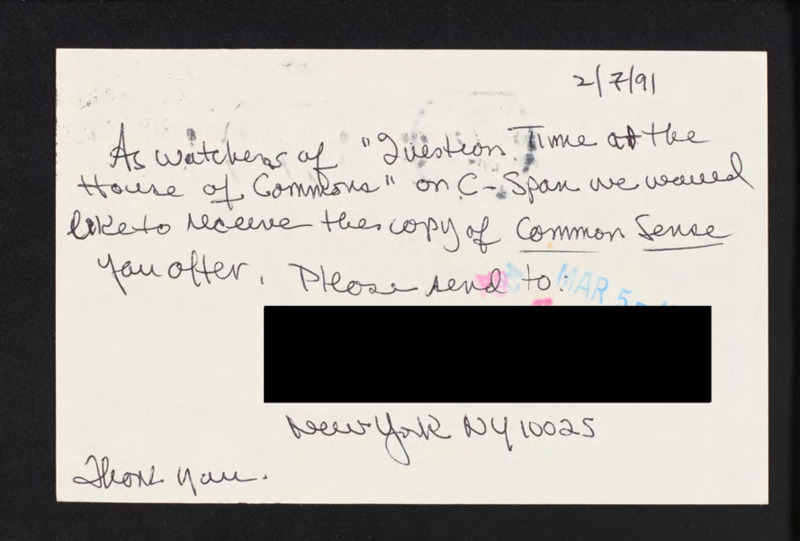 2/7/91
As watchers of "Question Time at the
House of Commons" on C-Span we would
like to receive the copy of Common Sense
you offer. Please send to:
MAR 5
New York NY 10025
Thank you.